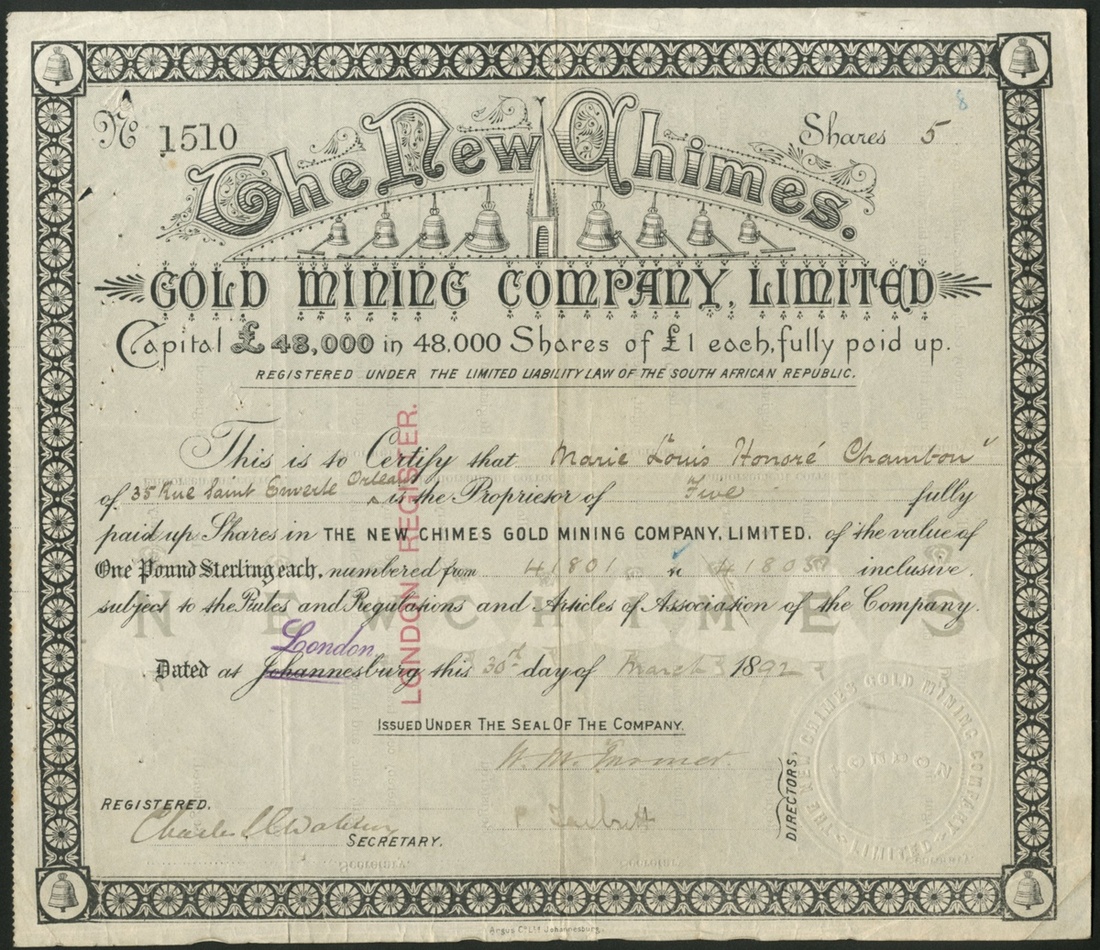 No 1510
Shares 5
8
The New Chimes.
GOLD MINING COMPANY, LIMITED
Capital £48,000 in 48,000 Shares of £1 each, fully paid up.
REGISTERED UNDER THE LIMITED LIABILITY LAW OF THE SOUTH AFRICAN REPUBLIC.
This is to Certify that Marie Louis Honoré Chambon
of 35 Rue Saint Orleans is the Proprietor of Five fully
paid up Shares in THE NEW CHIMES GOLD MINING COMPANY, LIMITED. of the value of
One Pound Sterling each, numbered from 41801 to inclusive,
subject to the Rules and Regulations and Articles of Association of the Company.
NEW CHIMES
London
Dated at Johannesburg this 30th day of March 1892
LONDON REGISTER.
ISSUED UNDER THE SEAL OF THE COMPANY.
REGISTERED.
SECRETARY.
DIRECTORS
THE NEW CHIMES GOLD MINING COMPANY LIMITED
LONDON
Argus Co. Ltd Johannesburg.